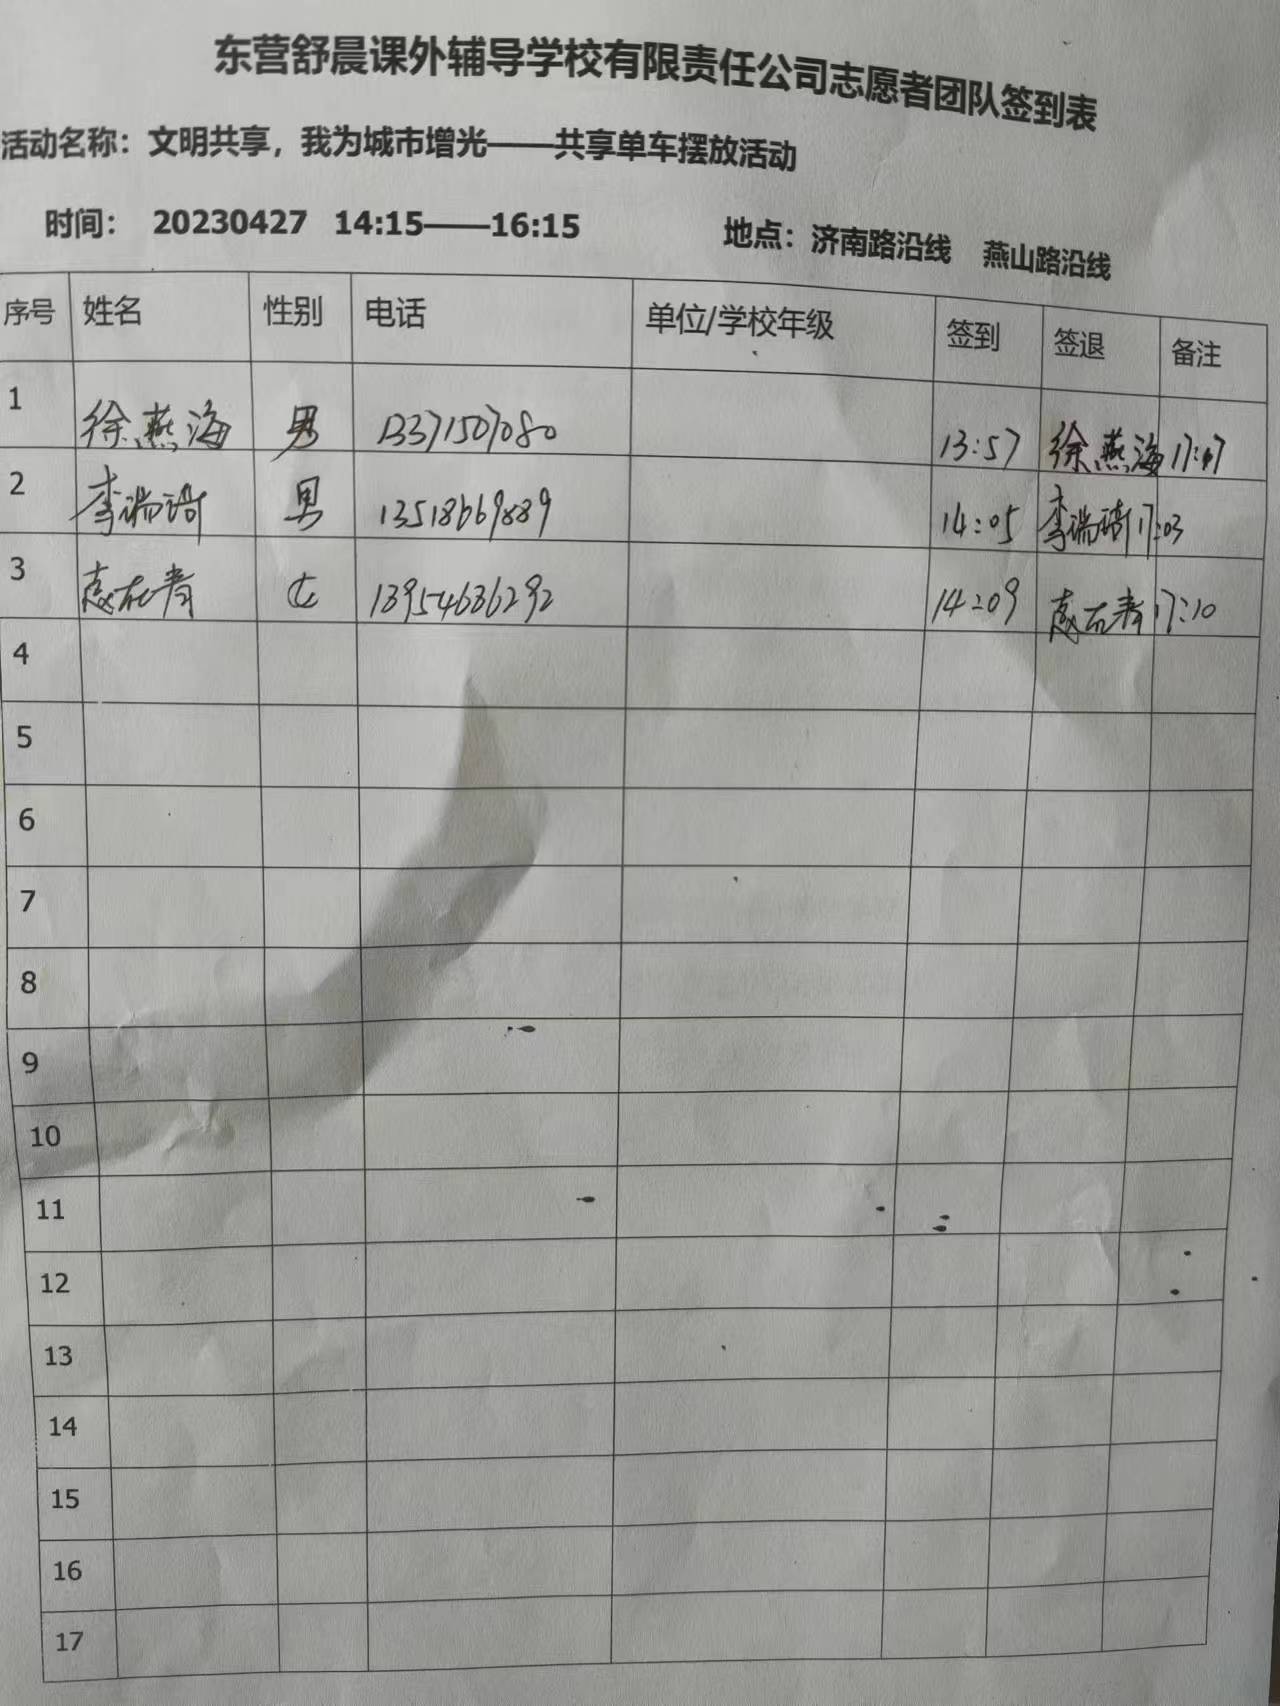 东营舒晨课外辅导学校有限责任公司志愿者团队签到表
活动名称：文明共享，我为城市增光——共享单车摆放活动
时间： 20230427 14:15——16:15 地点：济南路沿线 燕山路沿线
序号 姓名 性别 电话 单位/学校年级 签到 签退 备注
1 徐燕海 男 13371507080 13:57 徐燕海 17:07
2 李瑞琦 男 13518669889 14:05 李瑞琦 17:03
3 女 13954636292 14:09 17:10
4
5
6
7
8
9
10
11
12
13
14
15
16
17